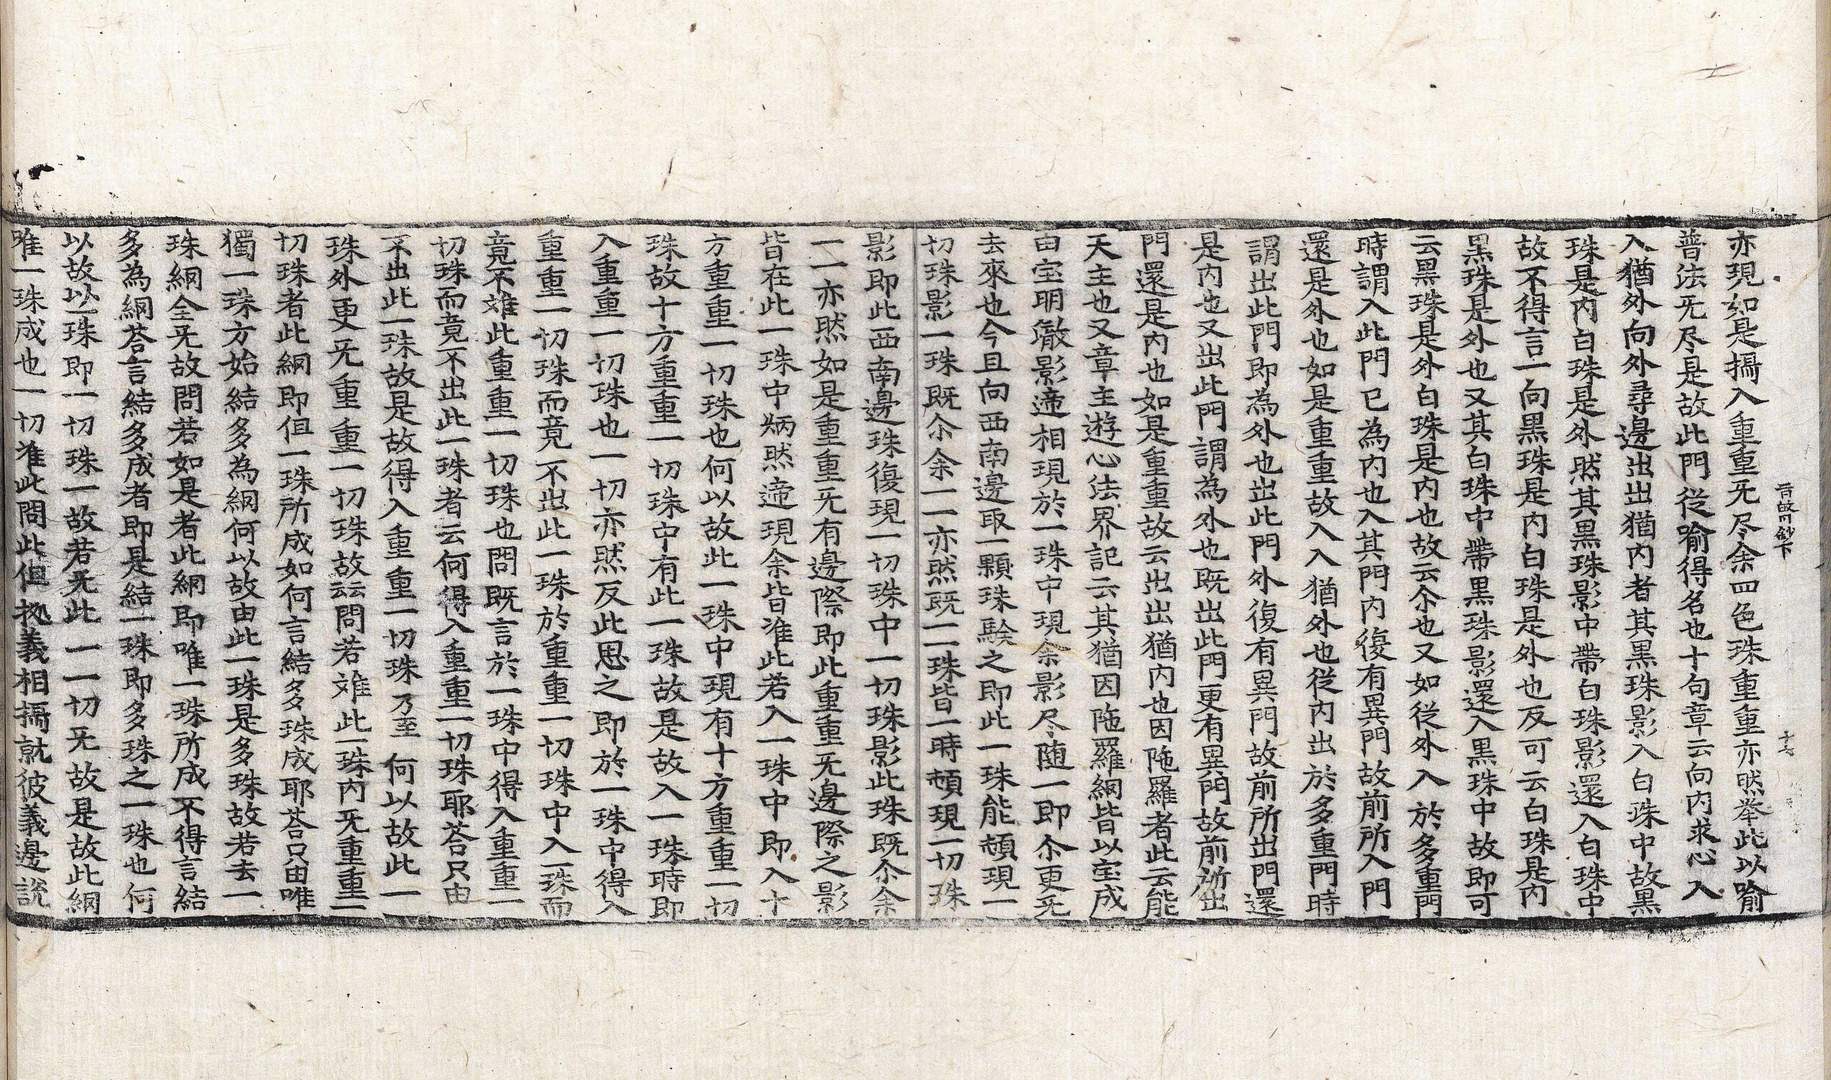 亦現如是攝入重重旡尽余四色珠重重亦然举此以喻
普法旡尽是故此門從喻得名也十句章云向内求心入
入猶外向外尋邊出出猶内者其黒珠影入白珠中故黒
珠是内白珠是外然其黒珠影中帶白珠影還入白珠中
故不得言一向黒珠是内白珠是外也反可云白珠是内
黒珠是外也又其白珠中帶黒珠影還入黒珠中故即可
云黒珠是外白珠是内也故云尒也又如從外入於多重門
時謂入此門已為内也入其門内復有異門故前所入門
還是外也如是重重故入入猶外也從内出於多重門時
謂出此門即為外也出此門外復有異門故前所出門還
是内也又出此門謂為外也既出此門更有異門故前所出
門還是内也如是重重故云出出猶内也因陁羅者此云能
天主也又章主遊心法界記云其猶因陁羅網皆以宝成
由宝明徹影逓相現於一珠中現余影尽随一即尒更旡
去來也今且向西南邊取一顆珠騐之即此一珠能頓現一
切珠影一珠既尒余一一亦然既一一珠皆一時頓現一切珠
影即此西南邊珠復現一切珠中一切珠影此珠既尒余
一一亦然如是重重旡有邊際即此重重旡邊際之影
皆在此一珠中炳然逓現余皆准此若入一珠中即入十
方重重一切珠也何以故此一珠中現有十方重重一切
珠故十方重重一切珠中有此一珠故是故入一珠時即
入重重一切珠也一切亦然反此思之即於一珠中得入
重重一切珠而竟不出此一珠於重重一切珠中入一珠而
竟不䧹此重重一切珠也問既言於一珠中得入重重一
切珠而竟不出此一珠者云何得入重重一切珠耶荅只由
不出此一珠故是故得入重重一切珠乃至何以故此一
珠外更旡重重一切珠故云云問若䧹此一珠内旡重重一
切珠者此網即但一珠所成如何言結多珠成耶荅只由唯
獨一珠方始結多為網何以故由此一珠是多珠故若去一
珠網全旡故問若如是者此網即唯一珠所成不得言結
多為網荅言結多成者即是結一珠即多珠之一珠也何
以故以一珠即一切珠一故若旡此一一切旡故是故此網
唯一珠成也一切准此問此但抝義相攝就彼義邊說